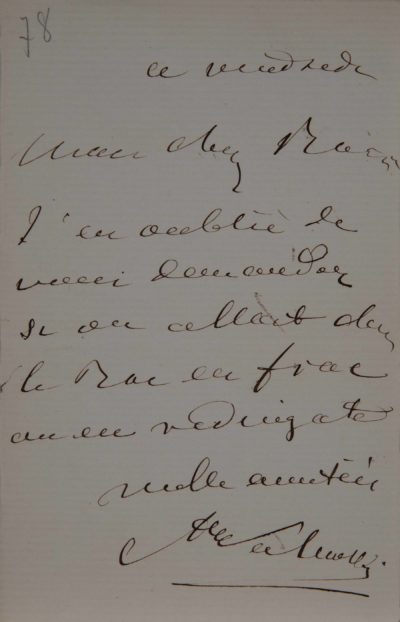 78
ce vendredi
Mon cher
J'ai oublié de
vous demander
si on allait chez
le en frac
ou en redingote
mille amitiés